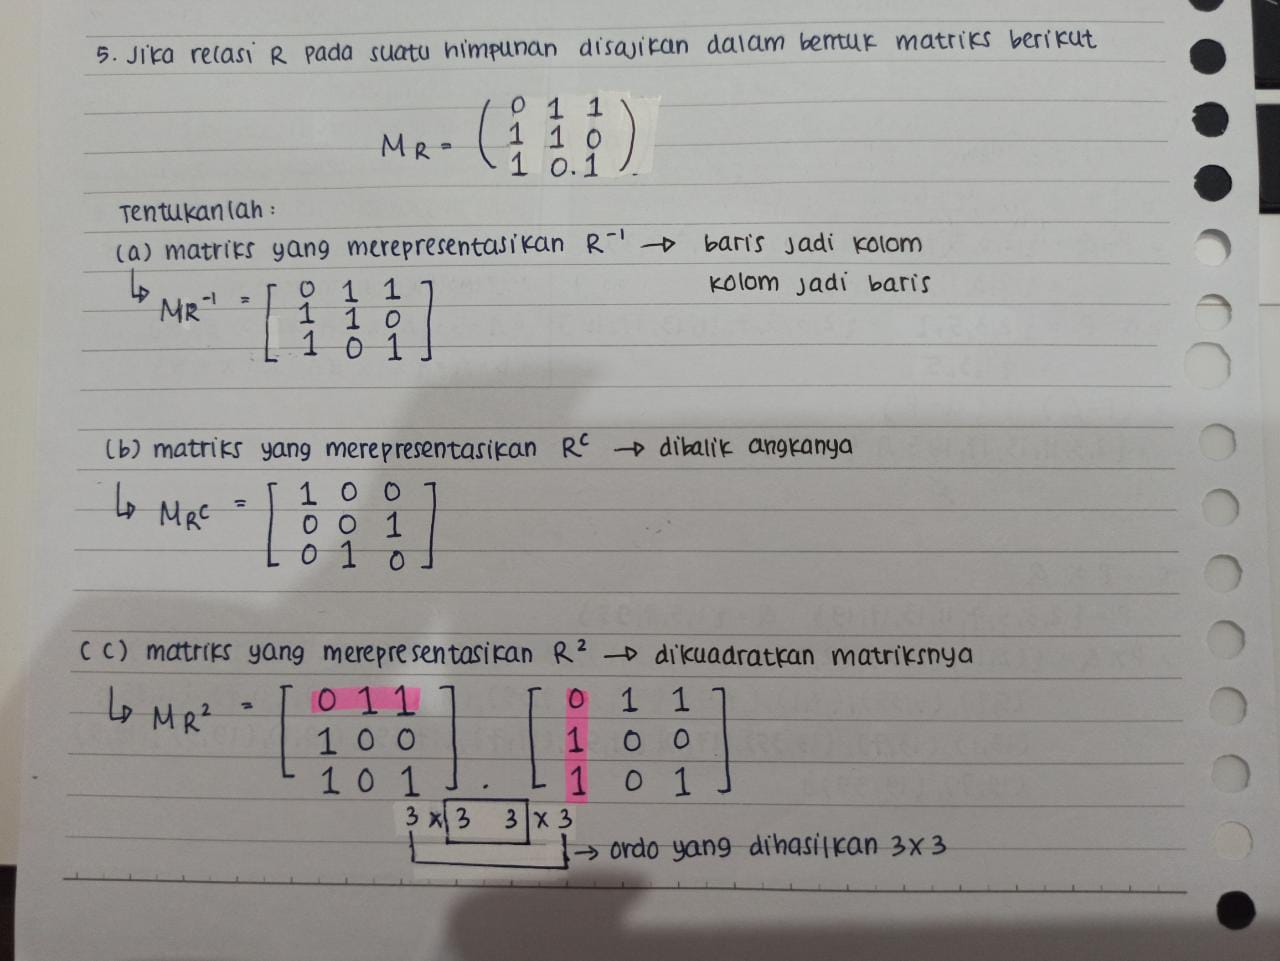 5. Jika relasi R pada suatu himpunan disajikan dalam bentuk matriks berikut
MR = ( 0 1 1
1 1 0
1 0.1 ).
Tentukanlah :
(a) matriks yang merepresentasikan R⁻¹ → baris jadi kolom
kolom jadi baris
↳ MR⁻¹ = [ 0 1 1
1 1 0
1 0 1 ]
(b) matriks yang merepresentasikan Rᶜ → dibalik angkanya
↳ MRᶜ = [ 1 0 0
0 0 1
0 1 0 ]
(c) matriks yang merepresentasikan R² → dikuadratkan matriksnya
↳ MR² = [ 0 1 1 ] [ 0 1 1 ]
1 0 0 1 0 0
1 0 1 . 1 0 1
3 x 3 3 x 3
→ ordo yang dihasilkan 3x3